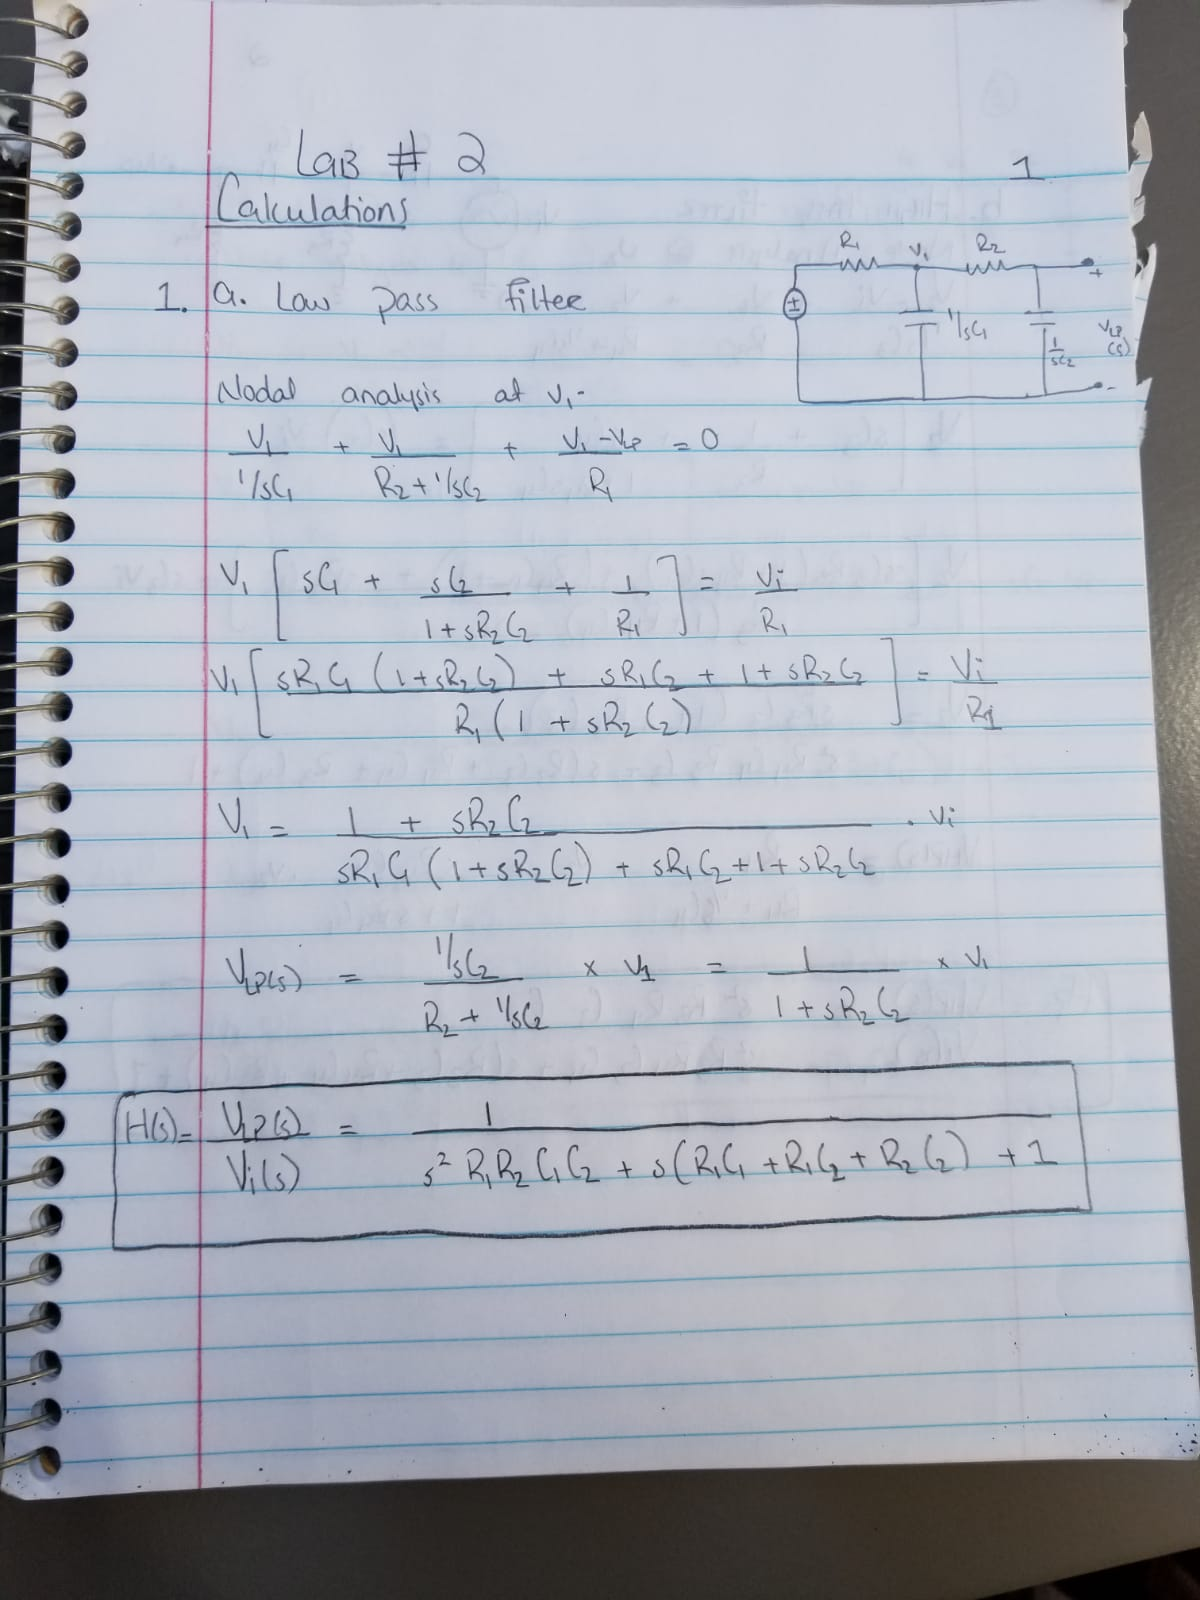 LAB # 2
1
Calculations
1. a. Low pass filter
R1 V1 R2
±
1/sC1
1/sC2
+
VLP(s)
-
Nodal analysis at V1-
V1/(1/sC1) + V1/(R2 + 1/sC2) + (V1 - VLP)/R1 = 0
V1 [ sC1 + sC2/(1 + sR2C2) + 1/R1 ] = Vi/R1
V1 [ (sR1C1 (1 + sR2C2) + sR1C2 + 1 + sR2C2)/(R1 (1 + sR2C2)) ] = Vi/R1
V1 = (1 + sR2C2)/(sR1C1 (1 + sR2C2) + sR1C2 + 1 + sR2C2) . Vi
VLP(s) = (1/sC2)/(R2 + 1/sC2) x V1 = 1/(1 + sR2C2) x V1
H(s) = VLP(s)/Vi(s) = 1/(s² R1R2 C1C2 + s(R1C1 + R1C2 + R2C2) + 1)